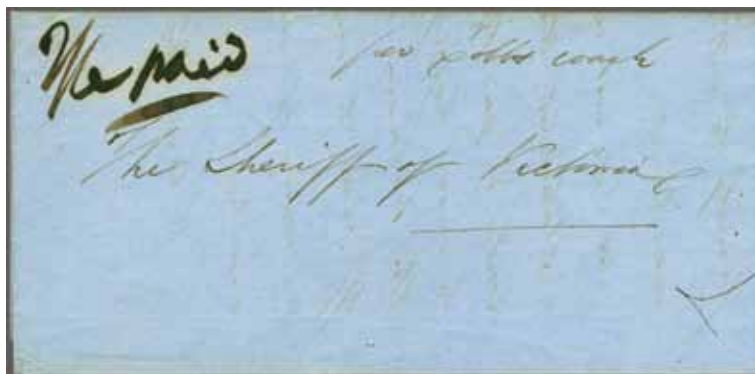 paid
per Cobbs coach
The Sheriff of Victoria